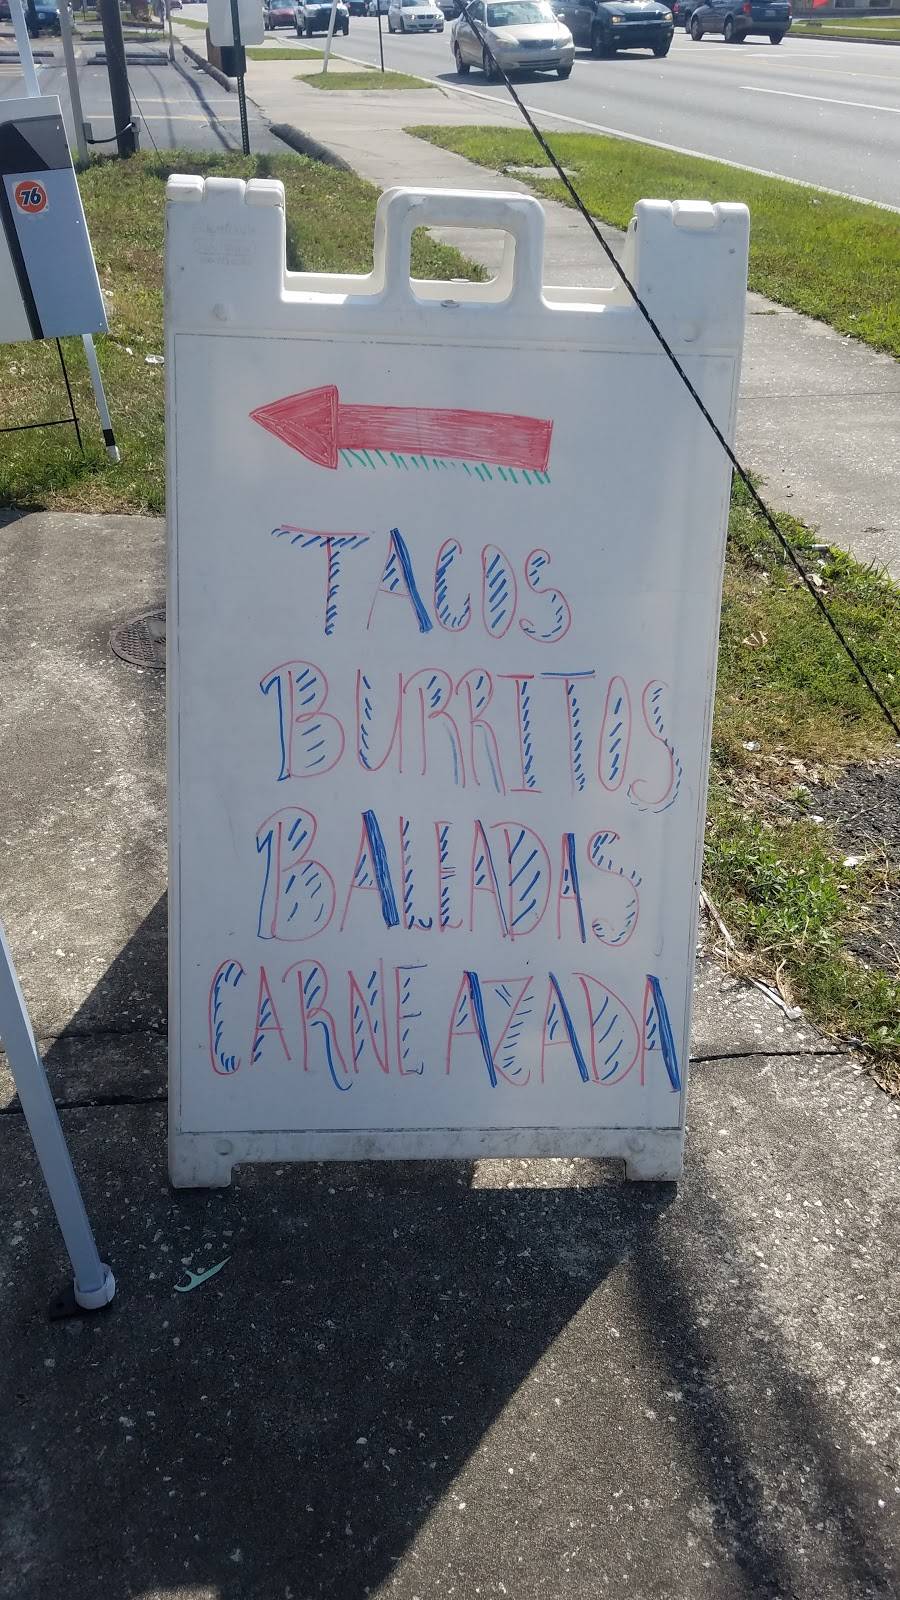 76
TACOS
BURRITOS
BALEADAS
CARNE AZADA